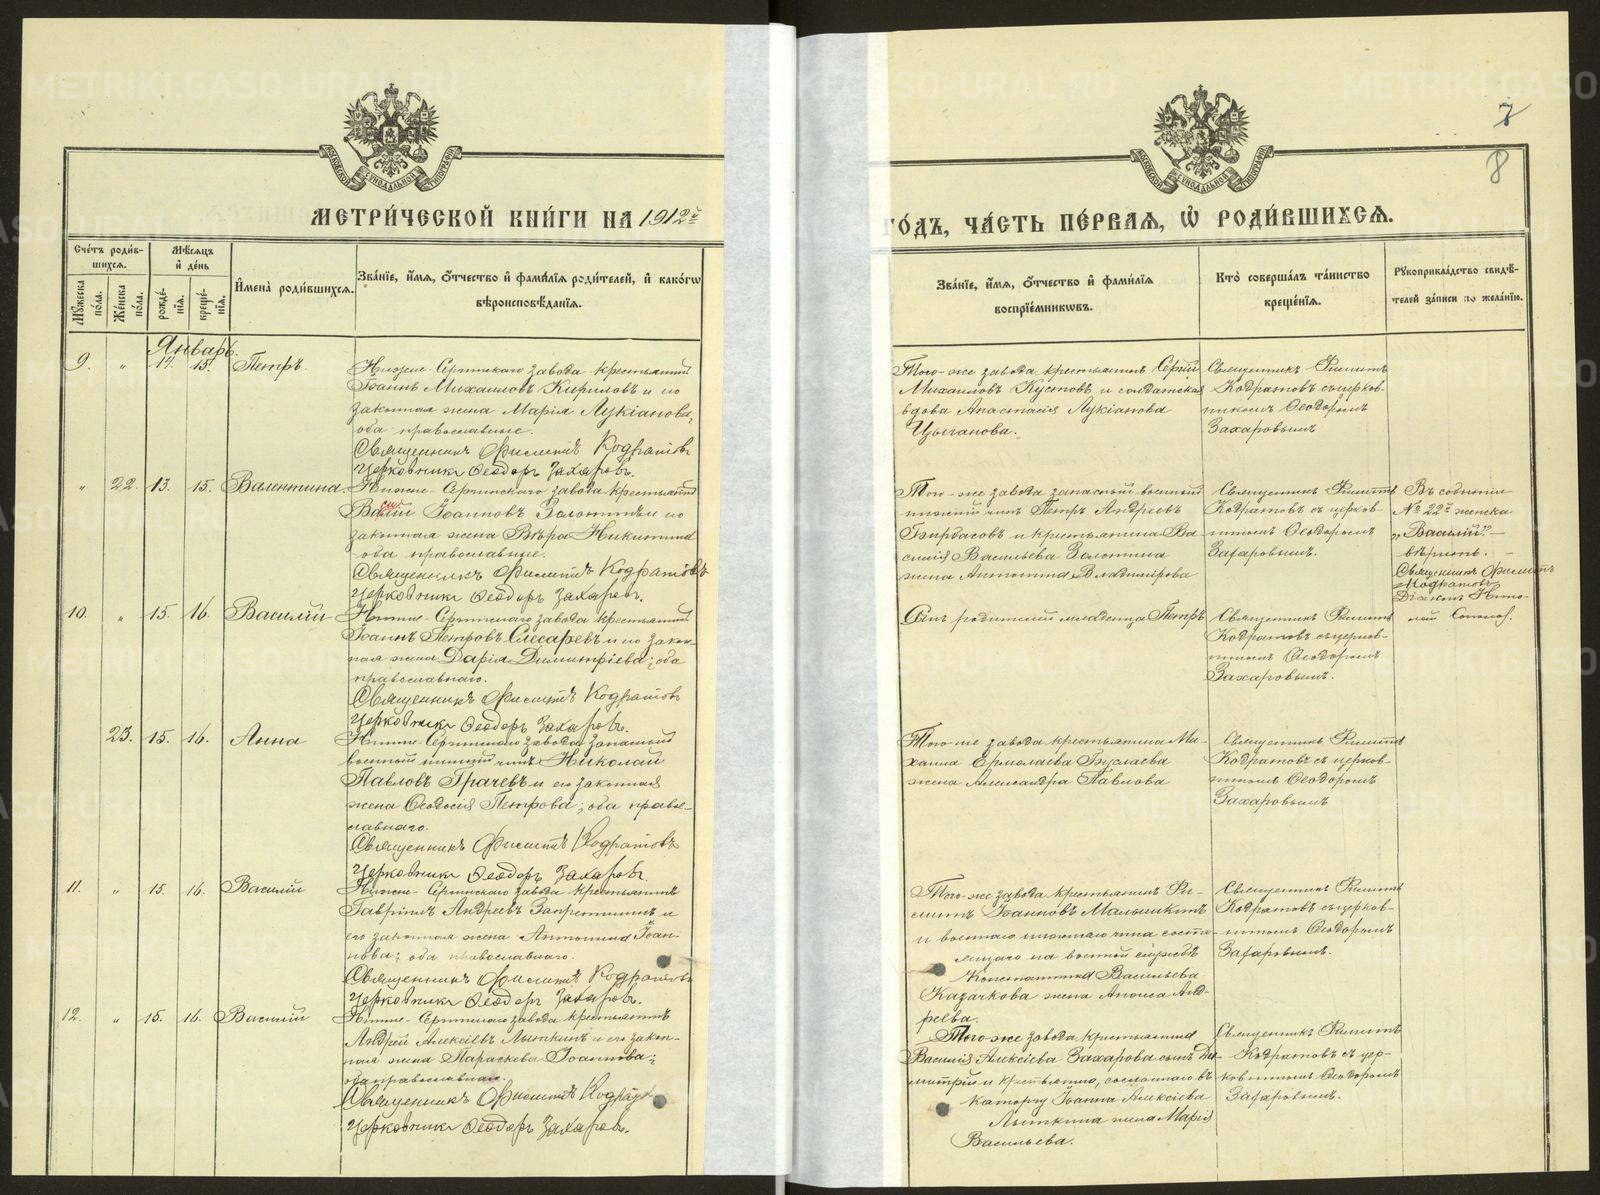 METRIKI.GASO-URAL.RU
7
8
МЕТРИ́ЧЕСКОЙ КНИ́ГИ НА 1912й
ГО́ДЪ, ЧА́СТЬ ПЕ́РВАЯ, Ѿ РОДИ́ВШИХСЯ.
Сче́тъ роди́в-
шихся.
Мѹ́жеска по́ла.
Же́нска по́ла.
Мѣ́сяцъ и҆ де́нь
рожде́нїя.
креще́нїя.
И҆мена̀ роди́вшихся.
Зва́нїе, и҆́мя, ѻ҆́тчество и҆ фами́лїя роди́телей, и҆ како́гѡ
вѣроисповѣ́данїя.
Зва́нїе, и҆́мя, ѻ҆́тчество и҆ фами́лїя
воспрїе́мникѡвъ.
Кто̀ соверша́лъ та́инство
креще́нїя.
Рꙋкоприкла́дство свидѣ́-
телей за́писи по жела́нїю.
Январь.
9. " 14. 15. Петръ.
Нижне-Сергинскаго завода крестьянинъ
Іоаннъ Михаиловъ Кириловъ и его
законная жена Марія Лукіанова,
оба православные.
Священникъ Филиппъ Кодратовъ
Церковникъ Ѳеодоръ Захаровъ.
Того-же завода крестьянинъ Сергій
Михаиловъ Кустовъ и солдатская
вдова Анастасія Лукіанова
Цыганова.
Священникъ Филиппъ
Кодратовъ съ церков-
никомъ Ѳеодоромъ
Захаровымъ
" 22. 13. 15. Валентина.
Нижне-Сергинскаго завода крестьянинъ
Василій Іоанновъ Золотинъ и его
законная жена Вѣра Никитина
оба православные.
Священникъ Филиппъ Кодратовъ
Церковникъ Ѳеодоръ Захаровъ.
Того-же завода запасный военный
нижній чинъ Петръ Андреевъ
и крестьянина Ва-
силія Васильева Золотина
жена Антонина Владимірова
Священникъ Филиппъ
Кодратовъ съ церков-
никомъ Ѳеодоромъ
Захаровымъ.
Въ событіи
№ 22й женска
„Василій"
вѣрить. —
Священникъ Филиппъ
Кодратовъ
Діаконъ Нико-
лай
10. " 15. 16. Василій
Нижне-Сергинскаго завода крестьянинъ
Іоаннъ Петровъ Слесаревъ и его закон-
ная жена Дарія Димитріева; оба
православнаго.
Священникъ Филиппъ Кодратовъ
Церковникъ Ѳеодоръ Захаровъ.
родителей младенца Петръ
Священникъ Филиппъ
Кодратовъ съ церков-
никомъ Ѳеодоромъ
Захаровымъ.
23. 15. 16. Анна
Нижне-Сергинскаго завода запасный
военный нижній чинъ Николай
Павловъ Грачевъ и его законная
жена Ѳеодосія Петрова; оба право-
славнаго.
Священникъ Филиппъ Кодратовъ
Церковникъ Ѳеодоръ Захаровъ.
Того-же завода крестьянина Ми-
хаила Ермолаева Буслаева
жена Александра Павлова
Священникъ Филиппъ
Кодратовъ съ церков-
никомъ Ѳеодоромъ
Захаровымъ
11. " 15. 16. Василій
Нижне-Сергинскаго завода крестьянинъ
Гавріилъ Андреевъ и
его законная жена Антонина Іоан-
нова; оба православнаго.
Священникъ Филиппъ Кодратовъ
Церковникъ Ѳеодоръ Захаровъ.
Того-же завода крестьянинъ Фи-
липпъ Іоанновъ
и военнаго нижняго чина состо-
ящаго на военной службѣ
Константина Васильева
Казачкова жена Анд-
реева.
Священникъ Филиппъ
Кодратовъ съ церков-
никомъ Ѳеодоромъ
Захаровымъ.
12. " 15. 16. Василій
Нижне-Сергинскаго завода крестьянинъ
Андрей Алексѣевъ Лыткинъ и его закон-
ная жена Параскева Іоаннова;
оба православнаго.
Священникъ Филиппъ Кодратовъ
Церковникъ Ѳеодоръ Захаровъ.
Того-же завода крестьянина
Василія Алексѣева Захарова сынъ Ди-
митрій и крестьянина, сосланнаго въ
каторгу Іоанна Алексѣева
Лыткина жена Марія
Васильева.
Священникъ Филиппъ
Кодратовъ съ цер-
ковникомъ Ѳеодоромъ
Захаровымъ.